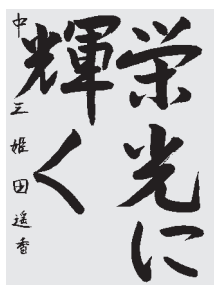 栄光に
輝く
中三 姫田遥香